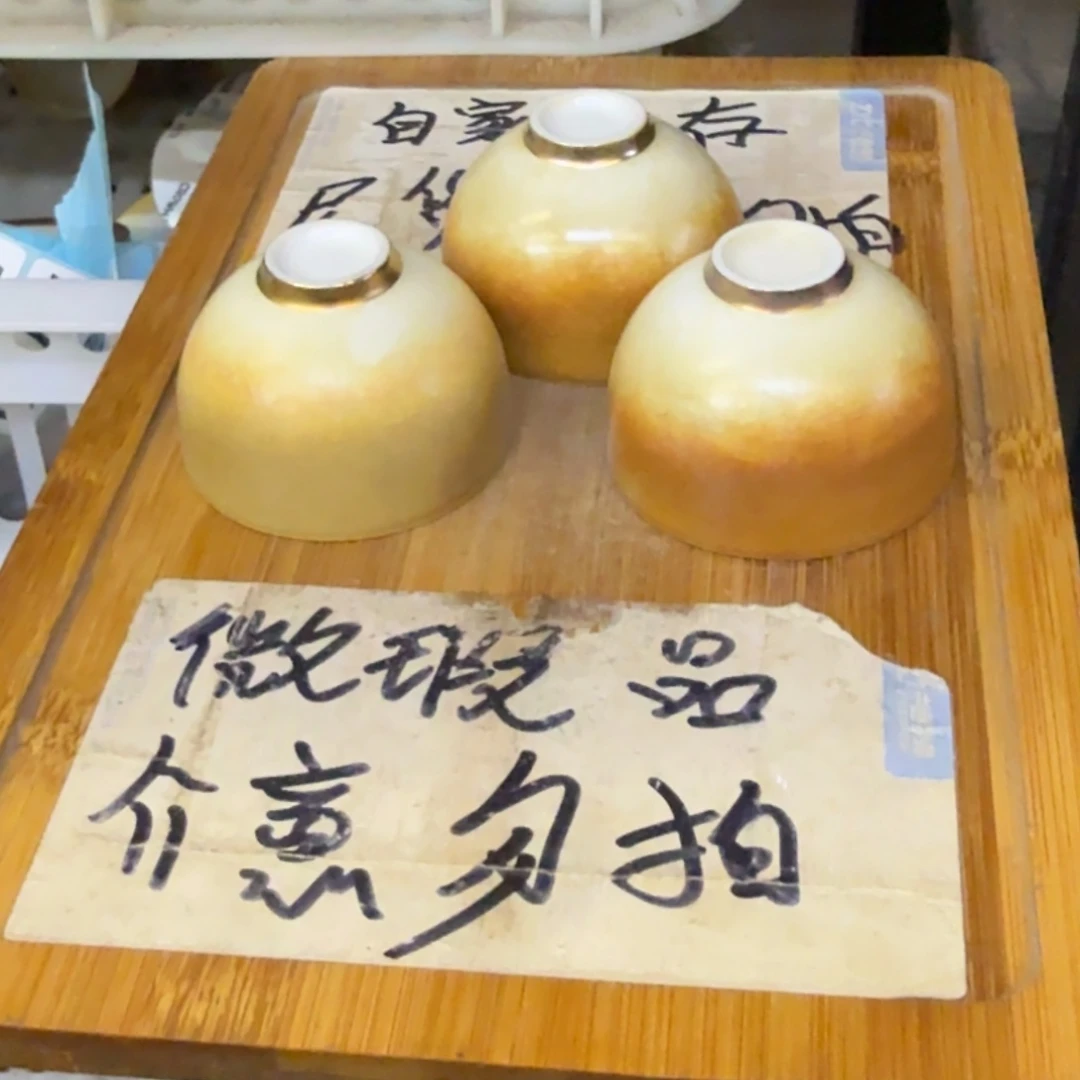 自家 存
尺 拍
微瑕品
介意勿拍